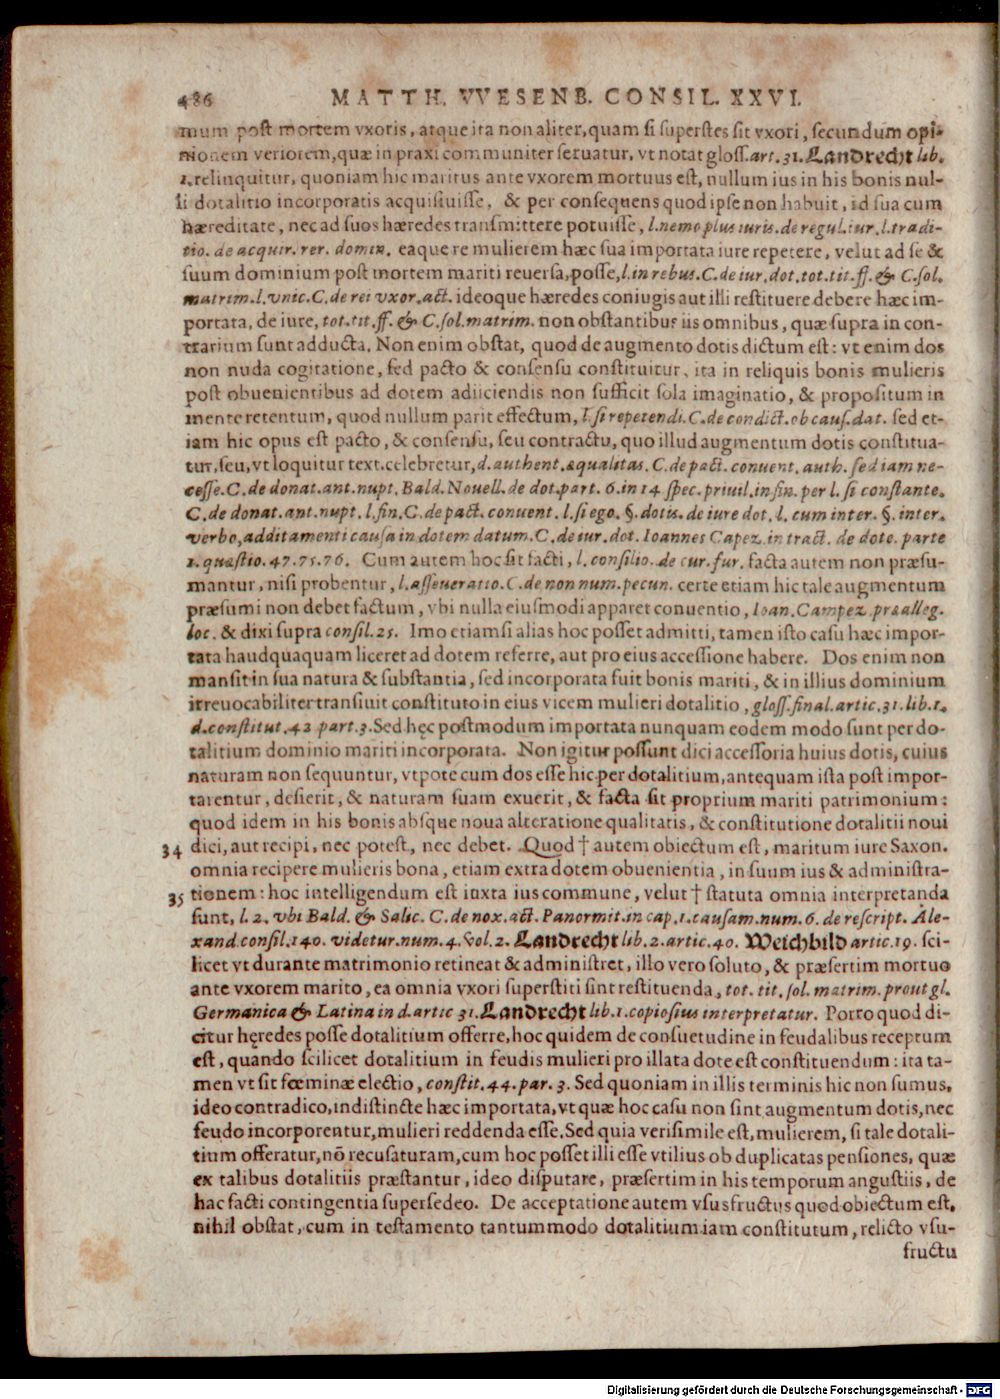 486 MATTH. VVESENB. CONSIL. XXVI.
mum post mortem vxoris, atque ita non aliter, quam si superstes sit vxori, secundum opi-
nionem veriorem, quæ in praxi communiter seruatur, vt notat gloss. art. 31. Landrecht lib.
1. relinquitur, quoniam hic maritus ante vxorem mortuus est, nullum ius in his bonis nul-
li dotalitio incorporatis acquisiuisse, & per consequens quod ipse non habuit, id sua cum
hæreditate, nec ad suos hæredes transmittere potuisse, l. nemo plus iuris. de regul. iur. l. tradi-
tio. de acquir. rer. domin. eaque re mulierem hæc sua importata iure repetere, velut ad se &
suum dominium post mortem mariti reuersa, posse, l. in rebus. C. de iur. dot. tot. tit. ff. & C. sol.
matrim. l. vnic. C. de rei vxor. act. ideoque hæredes coniugis aut illi restituere debere hæc im-
portata, de iure, tot. tit. ff. & C. sol. matrim. non obstantibus iis omnibus, quæ supra in con-
trarium sunt adducta. Non enim obstat, quod de augmento dotis dictum est: vt enim dos
non nuda cogitatione, sed pacto & consensu constituitur, ita in reliquis bonis mulieris
post obuenientibus ad dotem adiiciendis non sufficit sola imaginatio, & propositum in
mente retentum, quod nullum parit effectum, l. si repetendi. C. de condict. ob caus. dat. sed et-
iam hic opus est pacto, & consensu, seu contractu, quo illud augmentum dotis constitua-
tur, seu, vt loquitur text. celebretur, d. authent. æqualitas. C. de pact. conuent. auth. sed iam ne-
cesse. C. de donat. ant. nupt. Bald. Nouell. de dot. part. 6. in 14 spec. priuil. in fin. per l. si constante.
C. de donat. ant. nupt. l. fin. C. de pact. conuent. l. si ego. §. dotis. de iure dot. l. cum inter. §. inter.
verbo, additamenti causa in dotem datum. C. de iur. dot. Ioannes Capez. in tract. de dote. parte
1. quæstio. 47. 75. 76. Cum autem hoc sit facti, l. consilio. de cur. fur. facta autem non præsu-
mantur, nisi probentur, l. asseueratio. C. de non num. pecun. certe etiam hic tale augmentum
præsumi non debet factum, vbi nulla eiusmodi apparet conuentio, Ioan. Campez. præalleg.
loc. & dixi supra consil. 25. Imo etiamsi alias hoc posset admitti, tamen isto casu hæc impor-
tata haudquaquam liceret ad dotem referre, aut pro eius accessione habere. Dos enim non
mansit in sua natura & substantia, sed incorporata fuit bonis mariti, & in illius dominium
irreuocabiliter transiuit constituto in eius vicem mulieri dotalitio, gloss. final. artic. 31. lib. 1.
d. constitut. 42 part. 3. Sed hęc postmodum importata nunquam eodem modo sunt per do-
talitium dominio mariti incorporata. Non igitur possunt dici accessoria huius dotis, cuius
naturam non sequuntur, vtpote cum dos esse hic per dotalitium, antequam ista post impor-
tarentur, desierit, & naturam suam exuerit, & facta sit proprium mariti patrimonium:
quod idem in his bonis absque noua alteratione qualitatis, & constitutione dotalitii noui
34 dici, aut recipi, nec potest, nec debet. Quod † autem obiectum est, maritum iure Saxon.
omnia recipere mulieris bona, etiam extra dotem obuenientia, in suum ius & administra-
35 tionem: hoc intelligendum est iuxta ius commune, velut † statuta omnia interpretanda
sunt, l. 2. vbi Bald. & Salic. C. de nox. act. Panormit. in cap. 1. causam. num. 6. de rescript. Ale-
xand. consil. 140. videtur. num. 4. vol. 2. Landrecht lib. 2. artic. 40. Weichbild artic. 19. sci-
licet vt durante matrimonio retineat & administret, illo vero soluto, & præsertim mortuo
ante vxorem marito, ea omnia vxori superstiti sint restituenda, tot. tit. sol. matrim. prout gl.
Germanica & Latina in d. artic 31. Landrecht lib. 1. copiosius interpretatur. Porro quod di-
citur hęredes posse dotalitium offerre, hoc quidem de consuetudine in feudalibus receptum
est, quando scilicet dotalitium in feudis mulieri pro illata dote est constituendum: ita ta-
men vt sit fœminæ electio, constit. 44. par. 3. Sed quoniam in illis terminis hic non sumus,
ideo contradico, indistincte hæc importata, vt quæ hoc casu non sint augmentum dotis, nec
feudo incorporentur, mulieri reddenda esse. Sed quia verisimile est, mulierem, si tale dotali-
tium offeratur, nō recusaturam, cum hoc posset illi esse vtilius ob duplicatas pensiones, quæ
ex talibus dotalitiis præstantur, ideo disputare, præsertim in his temporum angustiis, de
hac facti contingentia supersedeo. De acceptatione autem vsusfructus quod obiectum est,
nihil obstat, cum in testamento tantummodo dotalitium iam constitutum, relicto vsu-
fructu
Digitalisierung gefördert durch die Deutsche Forschungsgemeinschaft - DFG